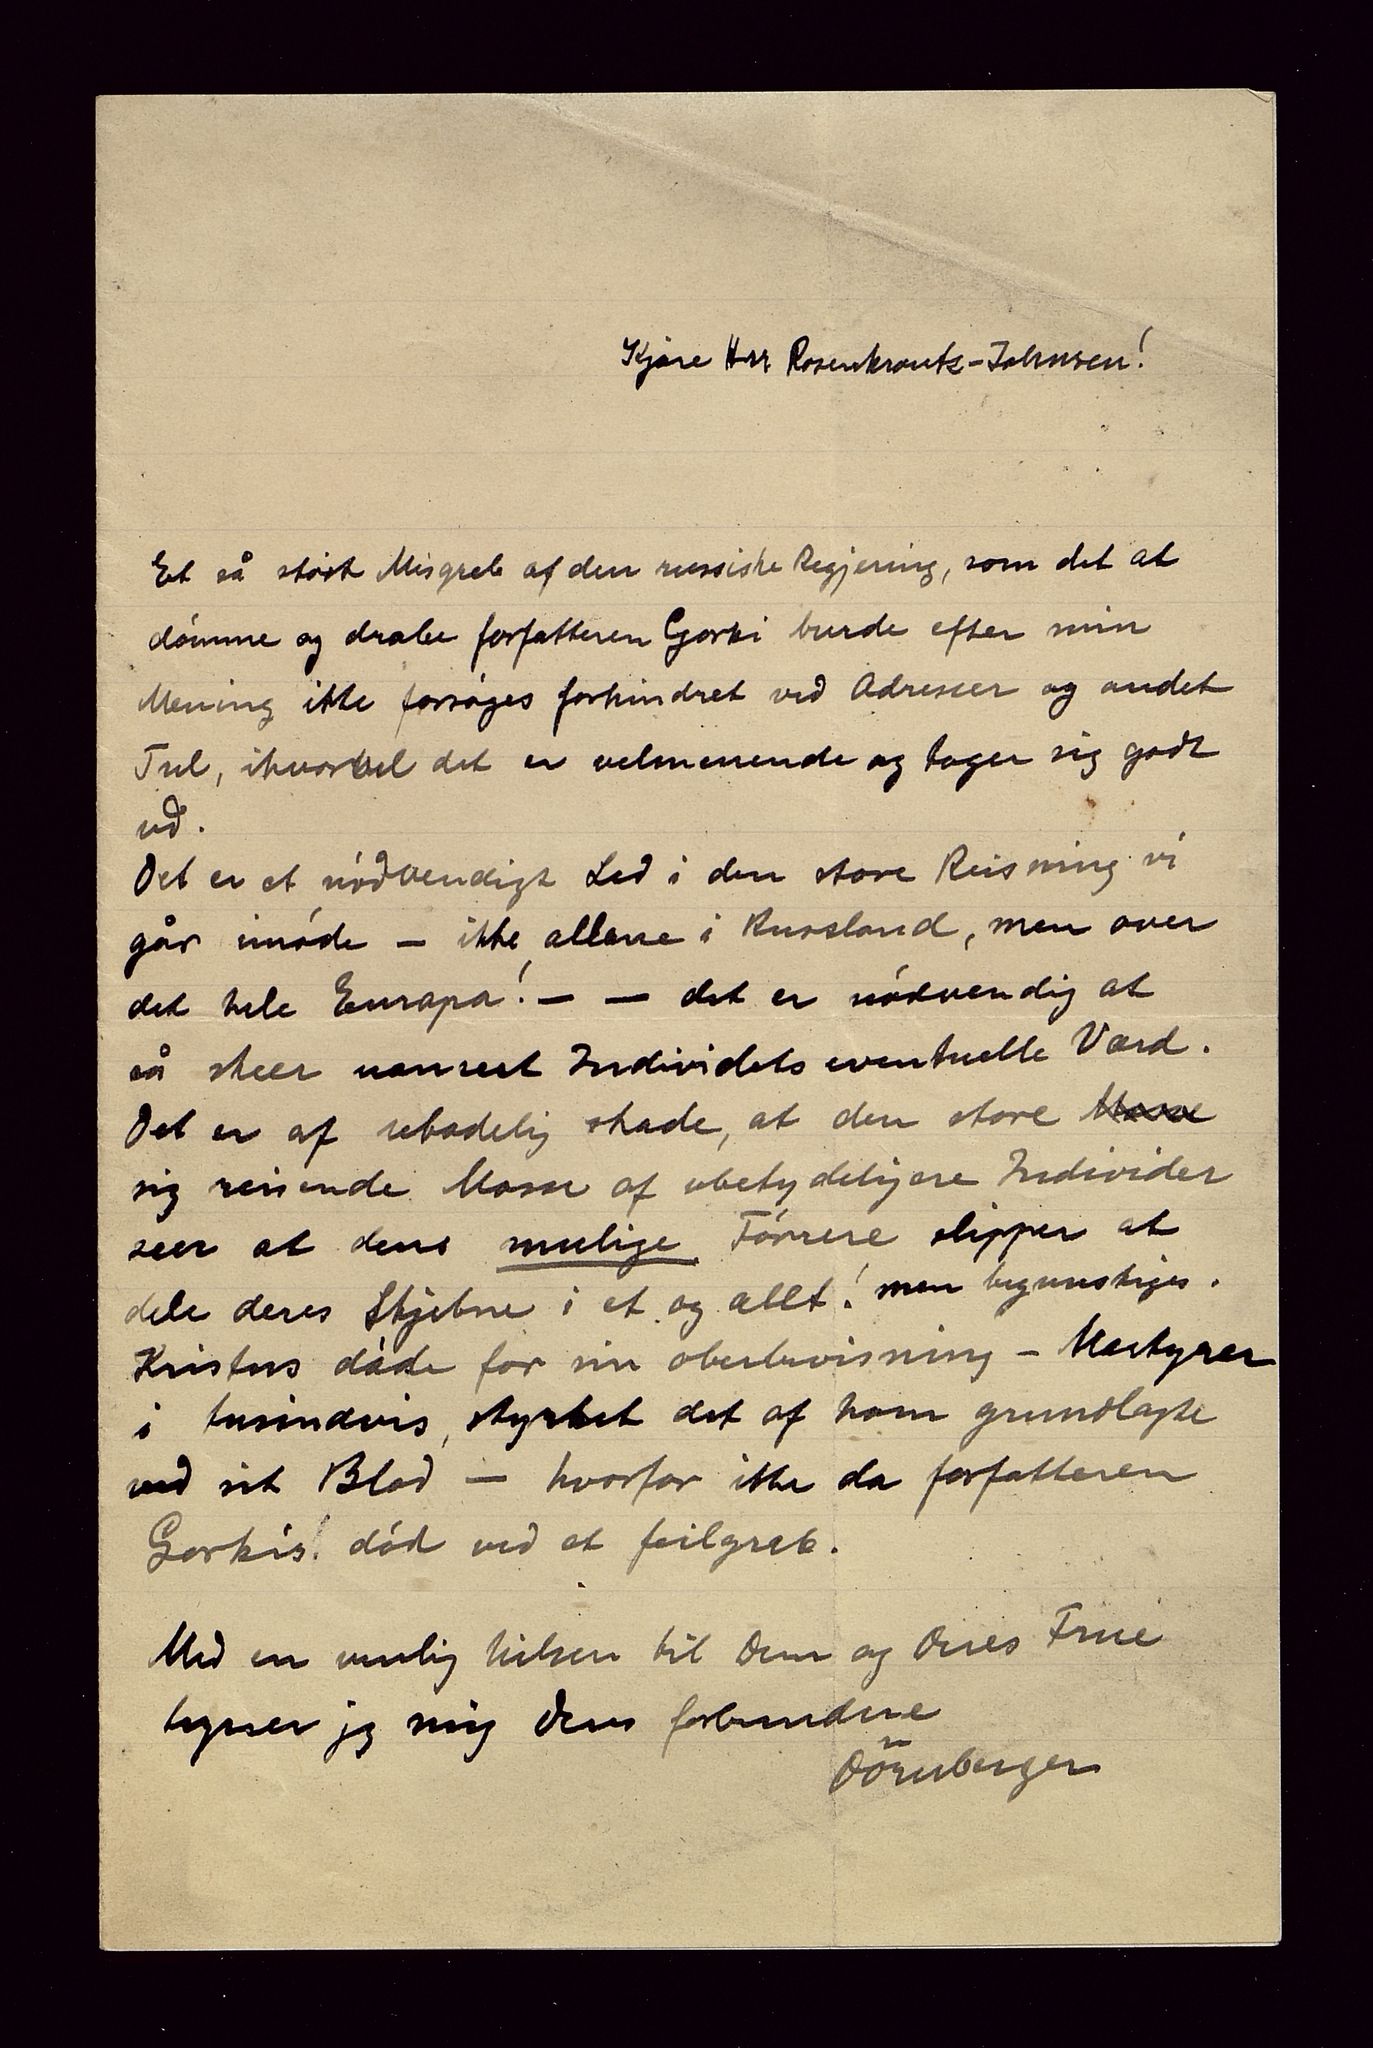 Kjære Herr Rosenkrantz-Johnsen!
Et så stórt Misgreb af den russiske Regjering, som det at
dómme og dræbe forfatteren Gorki burde efter min
Mening ikke forsóges forhindret ved Adresser og andet
Tul, ihvorvel det er velmenende og tager sig godt
ud.
Det er et nódvendigt Led i den store Reisning vi
går imóde – ikke allene i Russland, men over
det hele Europa! – – det er nódvendig at
så skeer uanseet Individets eventuelle Værd.
Det er af ubodelig skade, at den store Masse
sig reisende Masse af ubetydeligere Individer
seer at dens mulige Fórrere slipper at
dele deres Skjebne i et og allt! men begunstiges.
Kristus dóde for sin oberbevisning – Martyrer
i tusindvis, styrket det af ham grundlagte
ved sit Blod – hvorfor ikke da forfatteren
Gorkis! dód ved et feilgreb.
Med en venlig hilsen til Dem og Deres Frue
tegner jeg mig Deres forbundne
Dörnberger